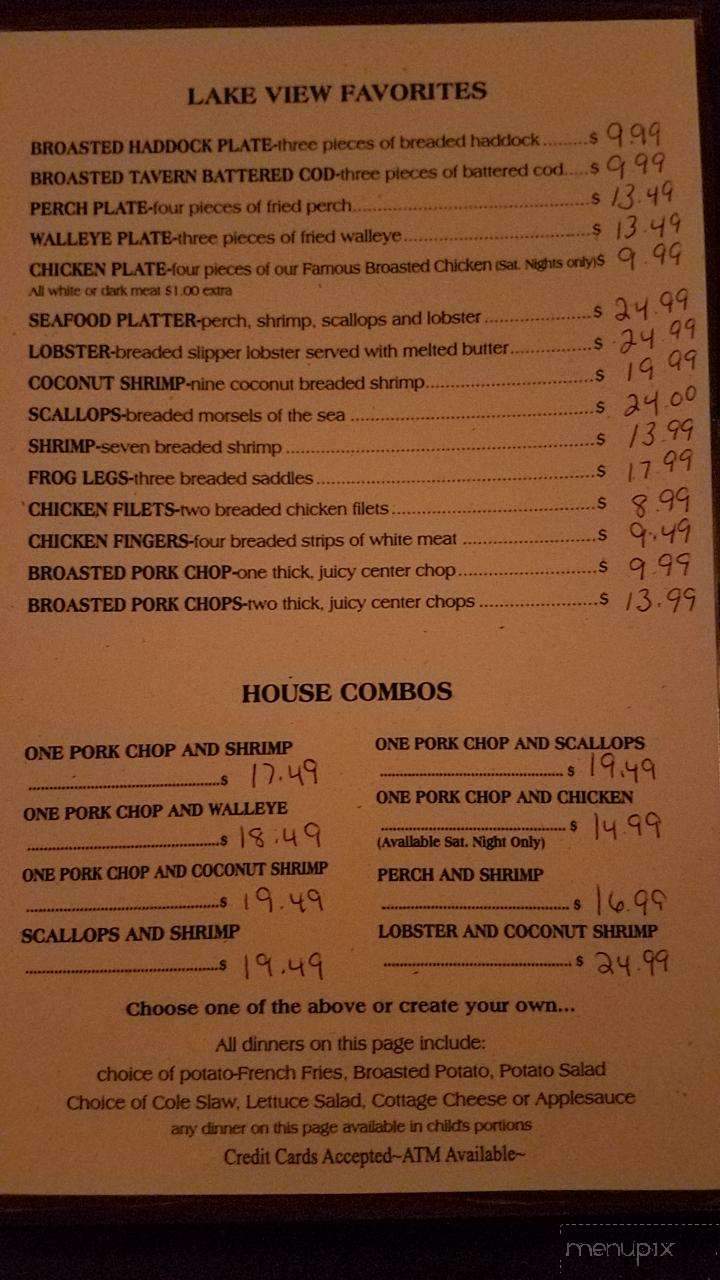 LAKE VIEW FAVORITES
BROASTED HADDOCK PLATE-three pieces of breaded haddock........$ 9.99
BROASTED TAVERN BATTERED COD-three pieces of battered cod.....$ 9.99
PERCH PLATE-four pieces of fried perch..................................................$ 13.49
WALLEYE PLATE-three pieces of fried walleye........................................$ 13.49
CHICKEN PLATE-four pieces of our Famous Broasted Chicken (Sat. Nights only)$ 9.99
All white or dark meat $1.00 extra
SEAFOOD PLATTER-perch, shrimp, scallops and lobster .......................$ 24.99
LOBSTER-breaded slipper lobster served with melted butter.................$ 24.99
COCONUT SHRIMP-nine coconut breaded shrimp...................................$ 19.99
SCALLOPS-breaded morsels of the sea ...................................................$ 24.00
SHRIMP-seven breaded shrimp ................................................................$ 13.99
FROG LEGS-three breaded saddles..........................................................$ 17.99
CHICKEN FILETS-two breaded chicken filets ..........................................$ 8.99
CHICKEN FINGERS-four breaded strips of white meat ...........................$ 9.49
BROASTED PORK CHOP-one thick, juicy center chop............................$ 9.99
BROASTED PORK CHOPS-two thick, juicy center chops ........................$ 13.99
HOUSE COMBOS
ONE PORK CHOP AND SHRIMP
..................................................$ 17.49
ONE PORK CHOP AND WALLEYE
..................................................$ 18.49
ONE PORK CHOP AND COCONUT SHRIMP
..................................................$ 19.49
SCALLOPS AND SHRIMP
..................................................$ 19.49
ONE PORK CHOP AND SCALLOPS
..................................................$ 19.49
ONE PORK CHOP AND CHICKEN
..................................................$ 14.99
(Available Sat. Night Only)
PERCH AND SHRIMP
..................................................$ 16.99
LOBSTER AND COCONUT SHRIMP
..................................................$ 24.99
Choose one of the above or create your own...
All dinners on this page include:
choice of potato-French Fries, Broasted Potato, Potato Salad
Choice of Cole Slaw, Lettuce Salad, Cottage Cheese or Applesauce
any dinner on this page available in child's portions
Credit Cards Accepted~ATM Available~
menupix